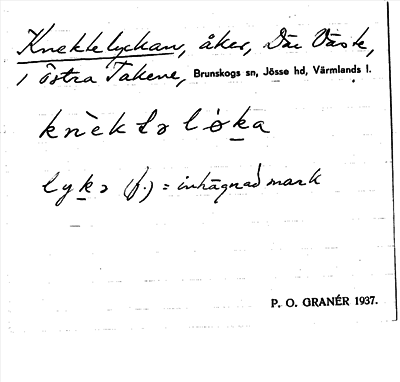 Knektelyckan, åker, Där Väste,
i Östra Takene, Brunskogs sn, Jösse hd, Värmlands l.
knèktə løka
lykə (f.) = inhägnad mark
P. O. GRANÉR 1937.